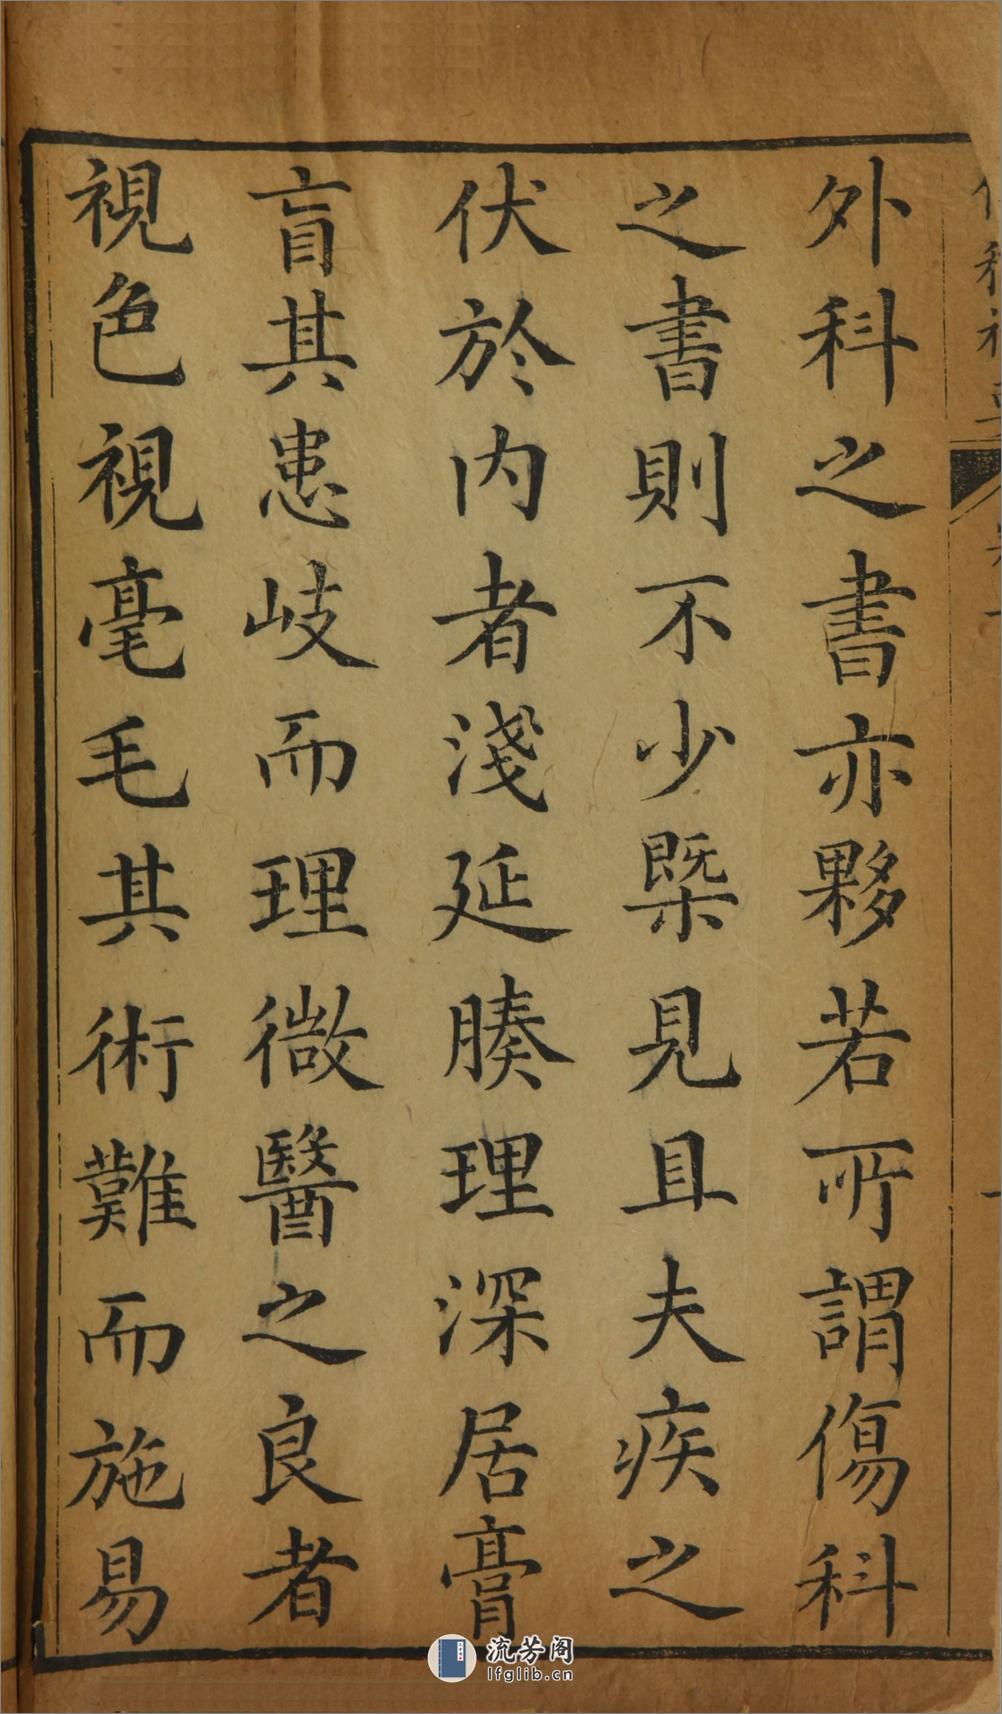 外科之書亦夥若所謂傷科
之書則不少槩見且夫疾之
伏於内者淺延腠理深居膏
肓其患歧而理微醫之良者
視色視毫毛其術難而施易
流芳阁
lfglib.cn